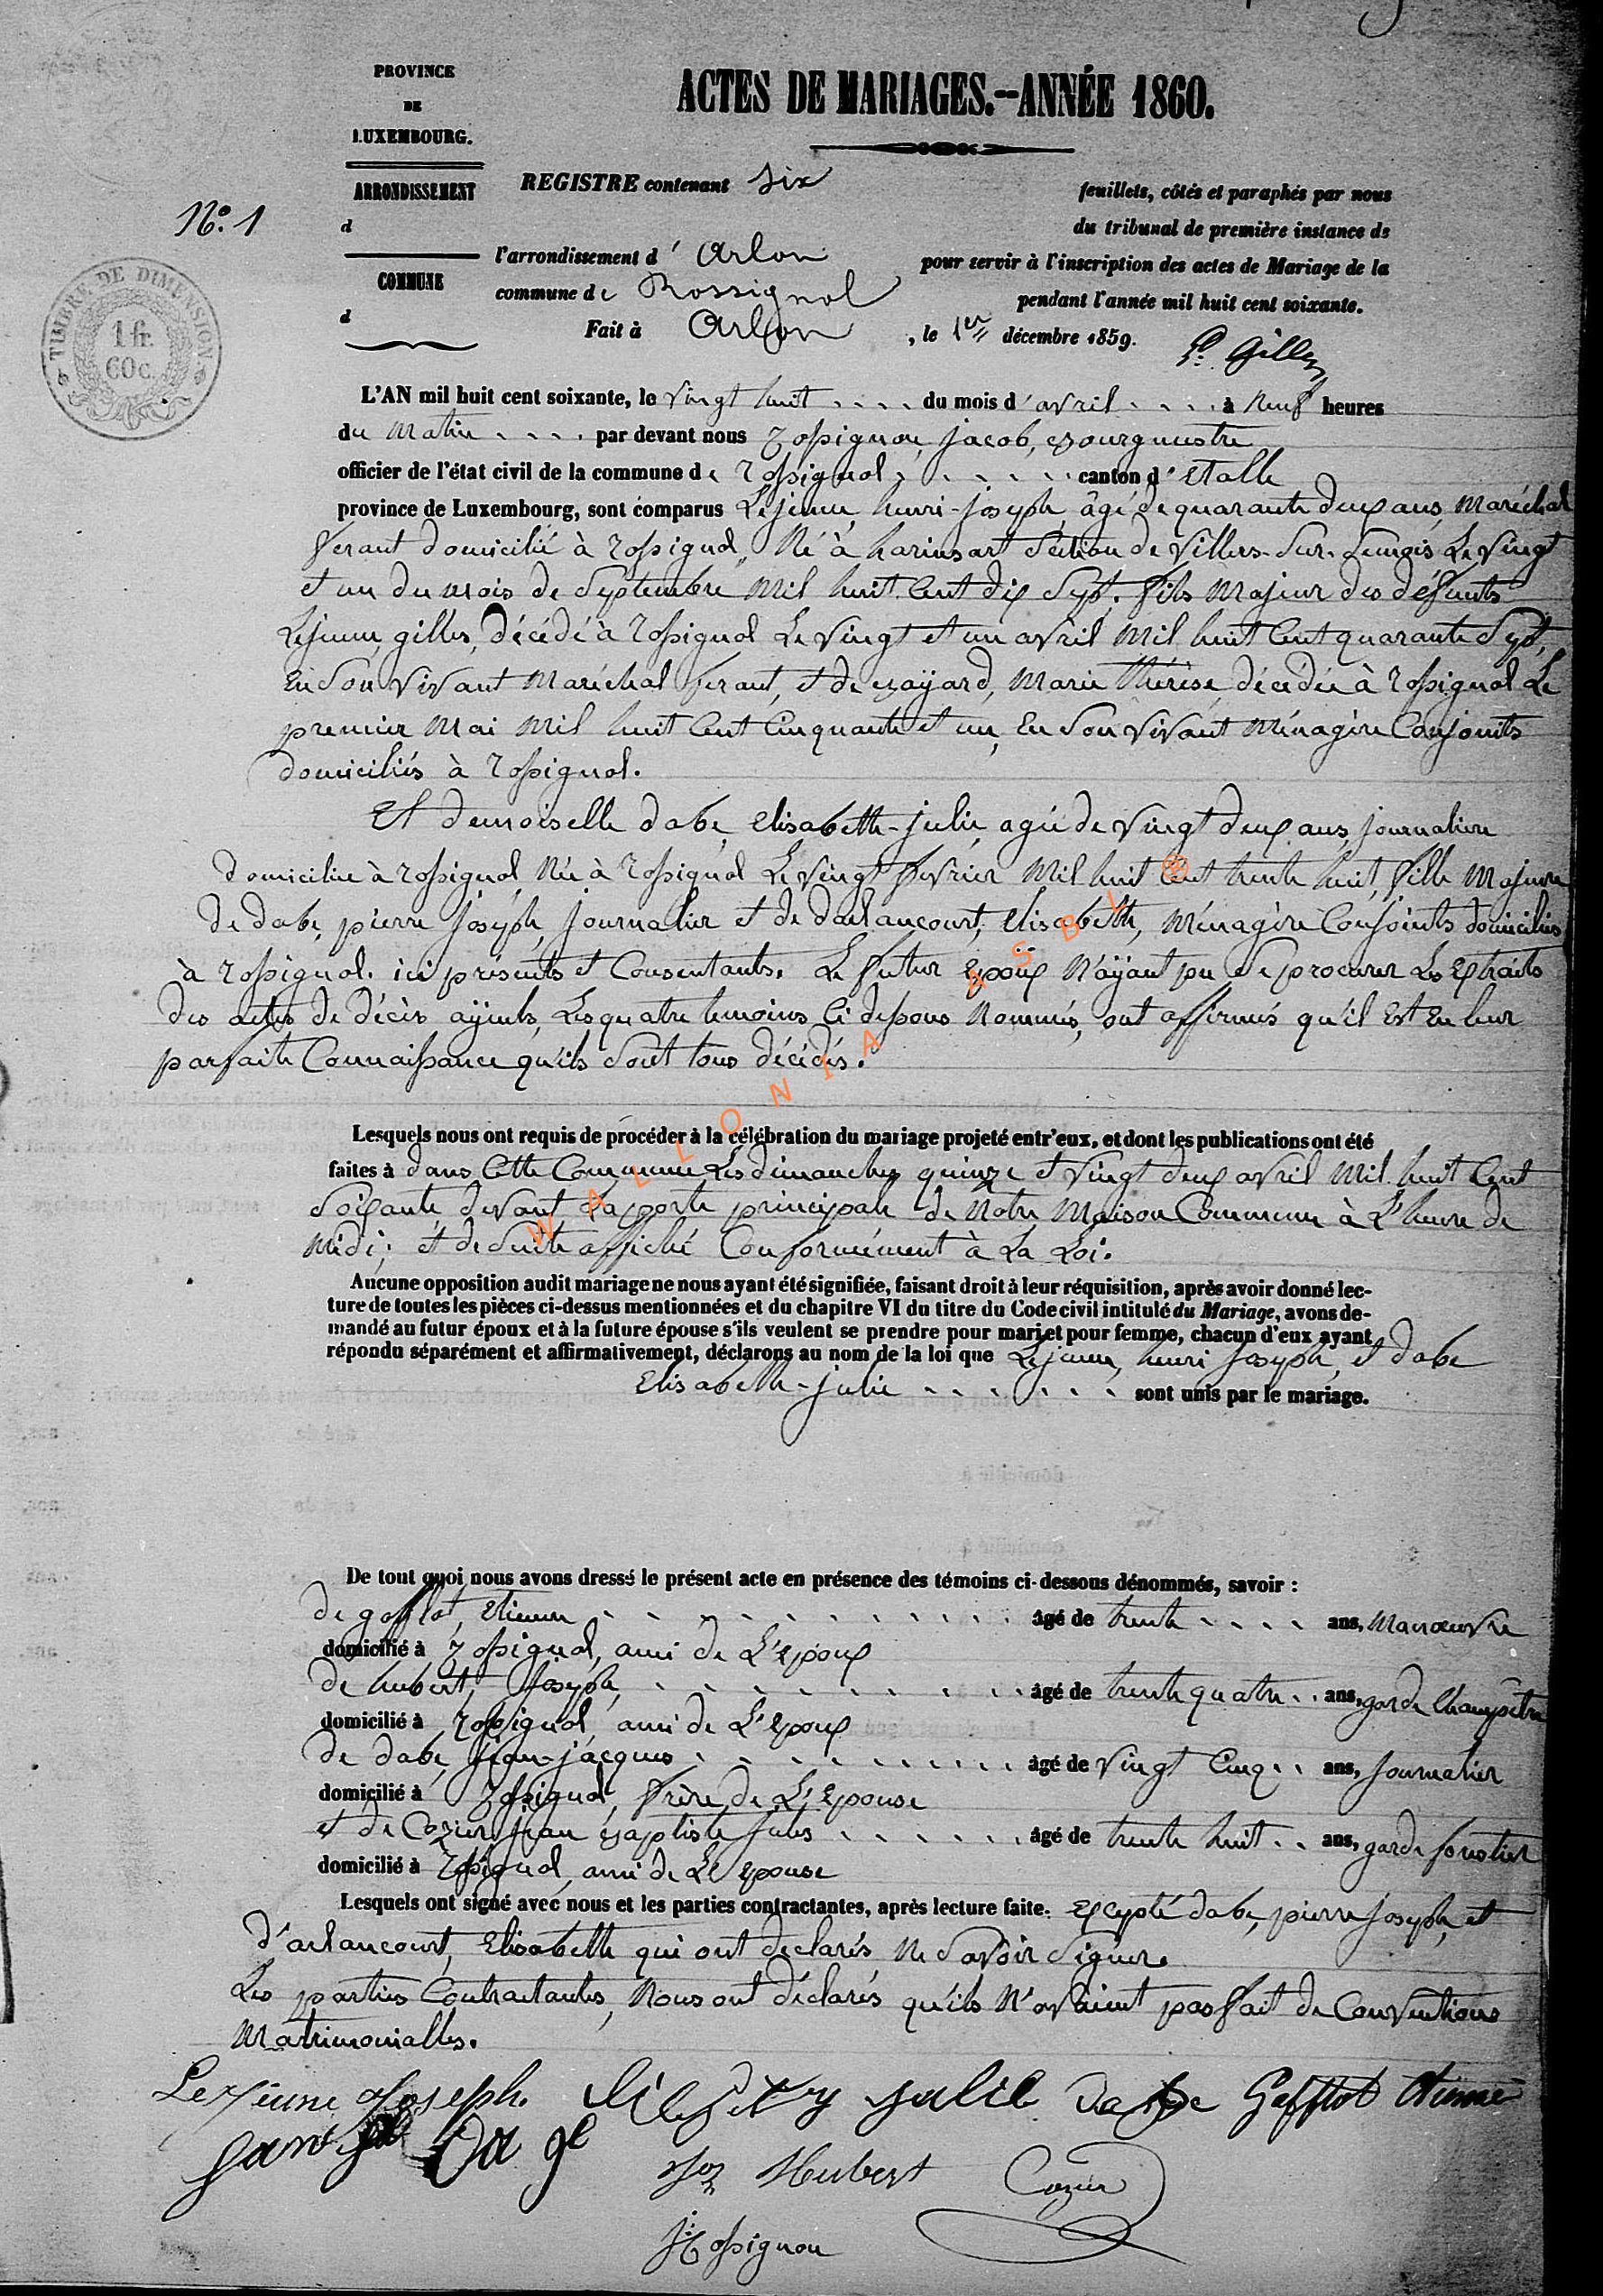 PROVINCE
DE
LUXEMBOURG.
ACTES DE MARIAGES.—ANNÉE 1860.
ARRONDISSEMENT
d
COMMUNE
d
No. 1
TIMBRE DE DIMENSION
1 fr.
60 c.
REGISTRE contenant six feuillets, côtés et paraphés par nous
du tribunal de première instance de
l'arrondissement d' Arlon pour servir à l'inscription des actes de Mariage de la
commune de Rossignol pendant l'année mil huit cent soixante.
Fait à Arlon, le 1er décembre 1859.
L'AN mil huit cent soixante, le vingt huit du mois d'avril à neuf heures
du matin par devant nous rossignon, jacob, Bourgmestre
officier de l'état civil de la commune de rossignol canton d'Etalle
province de Luxembourg, sont comparus Lejeune, henri-joseph, âgé de quarante deux ans, maréchal
ferant domicilié à rossignol, Né à harinsart section de Villers-sur-Semois Le vingt
et un du mois de septembre mil huit cent dix sept, fils majeur des défunts
Lejeune, gilles, décédé à rossignol Le vingt et un avril mil huit cent quarante sept,
En son vivant maréchal ferant, et de Bayard, marie thérèse décédée à rossignol Le
premier mai mil huit cent cinquante et un, En son vivant ménagère Conjoints
domiciliés à rossignol.
Et demoiselle dabe, elisabeth-julie, agée de vingt deux ans, journalière
domiciliée à rossignol Née à rossignol Le vingt fevrier mil huit cent trente huit, fille majeure
de dabe, pierre joseph, journalier et de darlancourt, elisabeth, ménagère Conjoints domiciliés
à rossignol. ici présents et Consentants. Le futur Epoux N'ayant pu se procurer Les Extraits
des actes de décès ayeuls, Les quatre temoins Ci dessous Nommés, ont affirmés qu'il Est En leur
parfaite Connaissance qu'ils sont tous décédés.
Lesquels nous ont requis de procéder à la célébration du mariage projeté entr'eux, et dont les publications ont été
faites à dans Cette Commune Les dimanches quinze et vingt deux avril mil huit Cent
soixante devant La porte principale de Notre Maison Commune à L'heure de
midi; et de suite affiché Conformément à La Loi.
Aucune opposition audit mariage ne nous ayant été signifiée, faisant droit à leur réquisition, après avoir donné lec-
ture de toutes les pièces ci-dessus mentionnées et du chapitre VI du titre du Code civil intitulé du Mariage, avons de-
mandé au futur époux et à la future épouse s'ils veulent se prendre pour mari et pour femme, chacun d'eux ayant
répondu séparément et affirmativement, déclarons au nom de la loi que Lejeune, henri joseph, et dabe
Elisabeth-julie sont unis par le mariage.
De tout quoi nous avons dressé le présent acte en présence des témoins ci-dessous dénommés, savoir :
de gofflot, Etienne âgé de trente ans, Manoeuvre
domicilié à rossignol, ami de L'epoux
de hubert, joseph, âgé de trente quatre ans, garde Champêtre
domicilié à rossignol, ami de L'epoux
de dabe, jean-jacques âgé de vingt Cinq ans, journalier
domicilié à rossignol, frère de L'Epouse
et de Cozier jean Baptiste jules âgé de trente huit ans, garde forestier
domicilié à rossignol, ami de L'epouse
Lesquels ont signé avec nous et les parties contractantes, après lecture faite. Excepté dabe, pierre joseph, et
d'arlancourt, Elisabeth qui ont declarés Ne savoir signer.
Les parties Contractantes, Nous ont déclarés qu'ils N'avaient pas fait de Conventions
Matrimonialles.
Lejeune Joseph. julie Dabe Gofflot Etienne
Hubert Cozier
Rossignon
WALLONIA ASBL ®